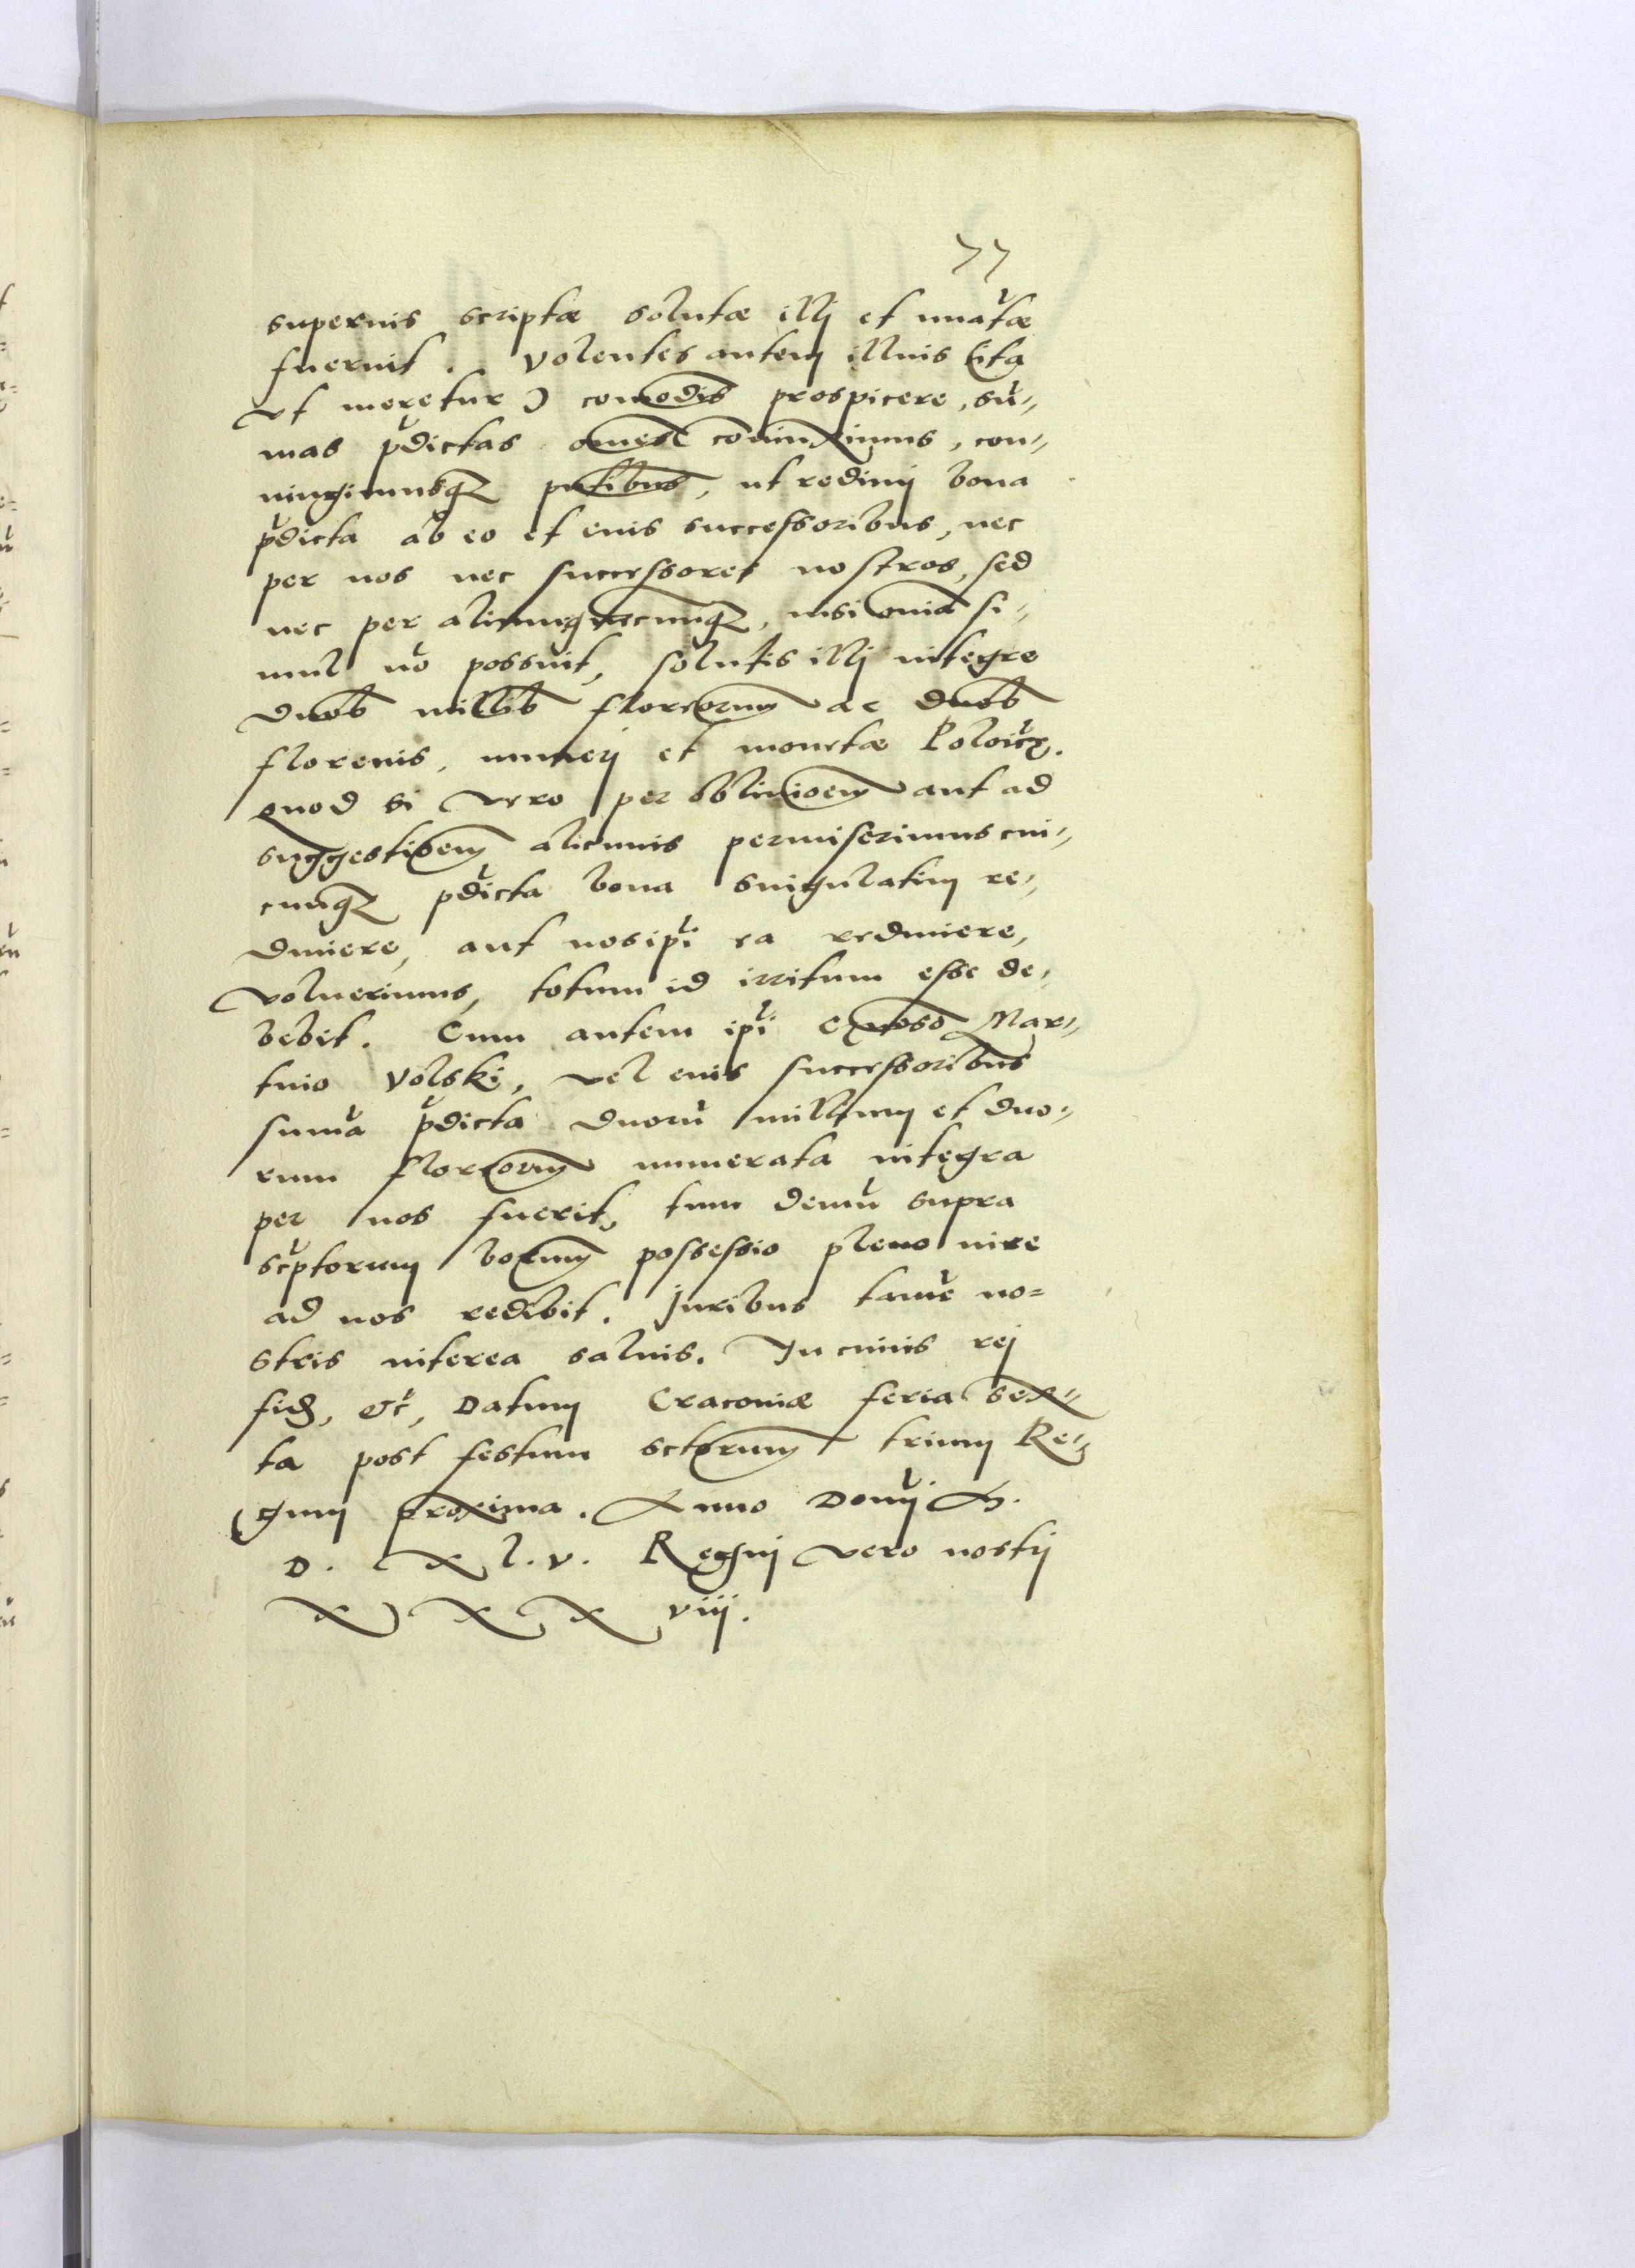 77
supernis scriptæ solutæ illj et nuātæ
fuerint. Volentes autem illius (ita
vt meretur) comodis prospicere, sū-
mas pdictas omes coniunximus, con-
iungimusq3 pntibus, ut redimj bona
pdicta ab eo et eius successoribus, nec
per nos nec successores nostros, sed
nec per aliumquencunq3, nisi omia si-
mul nō possint, solutis illj integre
duob millib florenorum ac duob
florenis, numerj et monetæ Poloniclis.
quod si vero per obliuioem aut ad
suggestioem alicuius permiserimus cui-
cunq3 pdicta bona singulatim re-
dimere, aut nos ipi ea redimere,
voluerimus, totum id irritum esse de-
bebit. Cum autem ipi Gnoso Mar-
tino Volski, vel eius successoribus
suma pdicta duorū millium et duo-
rum florenorum numerata integra
per nos fuerit, tum demū supra
scptorum bonorum possessio pleno iure
ad nos redibit. Juribus tamē no-
stris interea saluis. In cuius rej
fid, etc, Datum Cracouiæ feria sex-
ta post festum sctorum trium Re-
gum proxima. Anno Domj M.
D. XL.v. Regni vero nostrj
XXX viij.